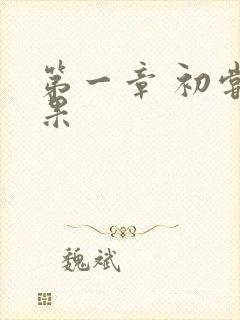 第一章 初尝
果
魏斌